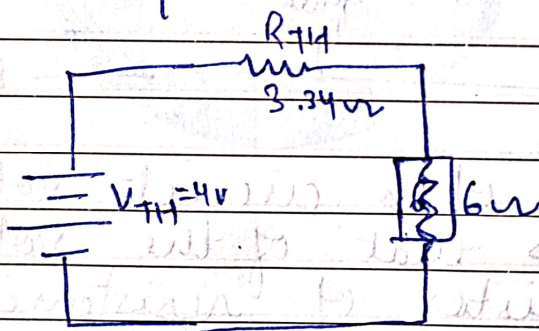 RTH
3.34Ω
VTH=4v
6Ω